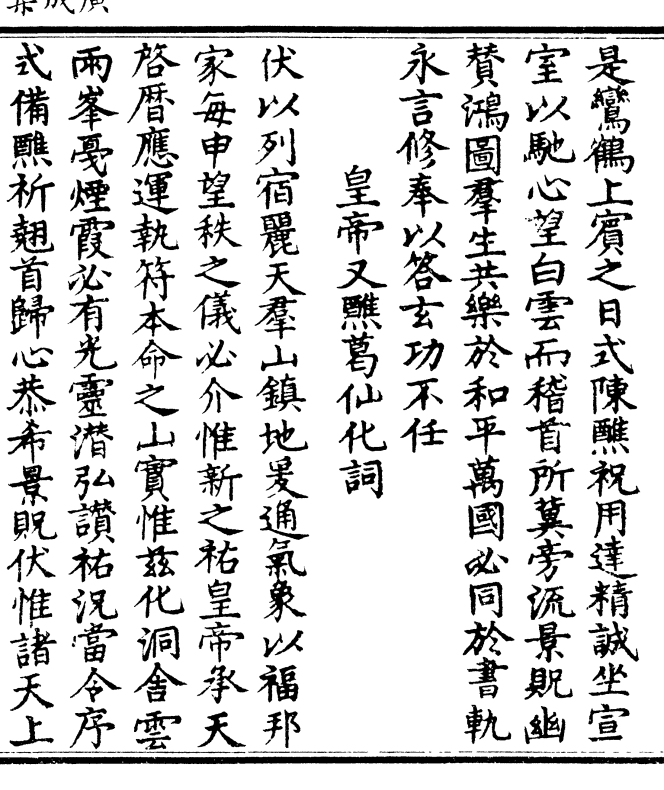 是鸞鶴上賓之日式陳醮祝用達精誠坐宣
室以馳心望白雲而稽首所冀旁流景貺幽
贊鴻圖羣生共樂於和平萬國必同於書軌
永言修奉以答玄功不任
皇帝又醮葛仙化詞
伏以列宿麗天羣山鎮地爰通氣象以福邦
家每申望秩之儀必介惟新之祐皇帝承天
啓曆應運執符本命之山實惟茲化洞舍雲
兩峯戞煙霞必有光靈潛弘讃祐況當令序
式備醮祈翹首歸心恭希景貺伏惟諸天上